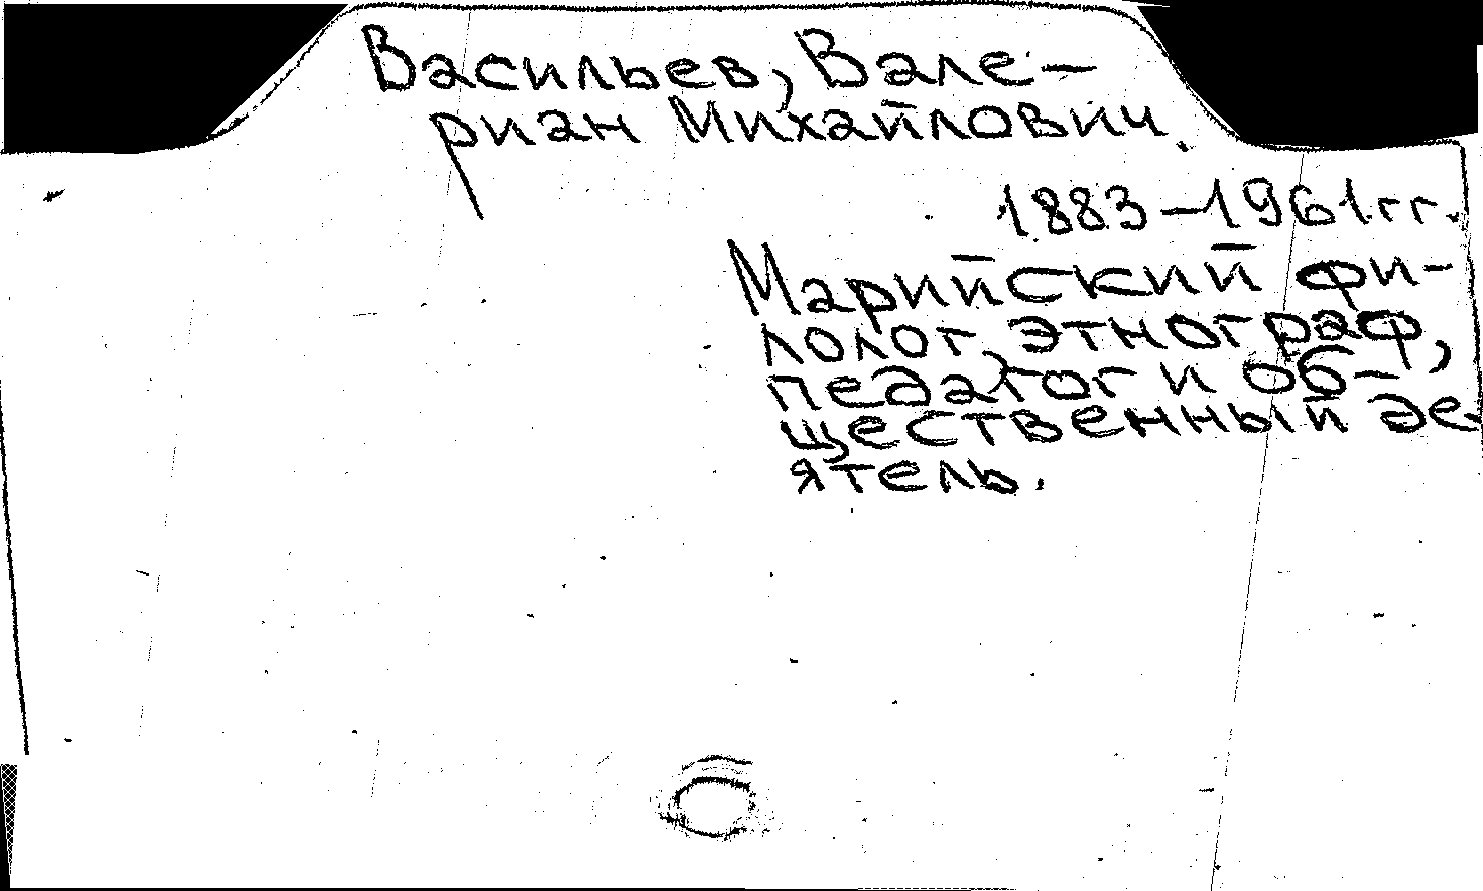 Васильев, Вале-
риан Михайлович.
1883-1961 гг.
Марийский фи-
лолог, этнограф,
педагог и об-
щественный де-
ятель.